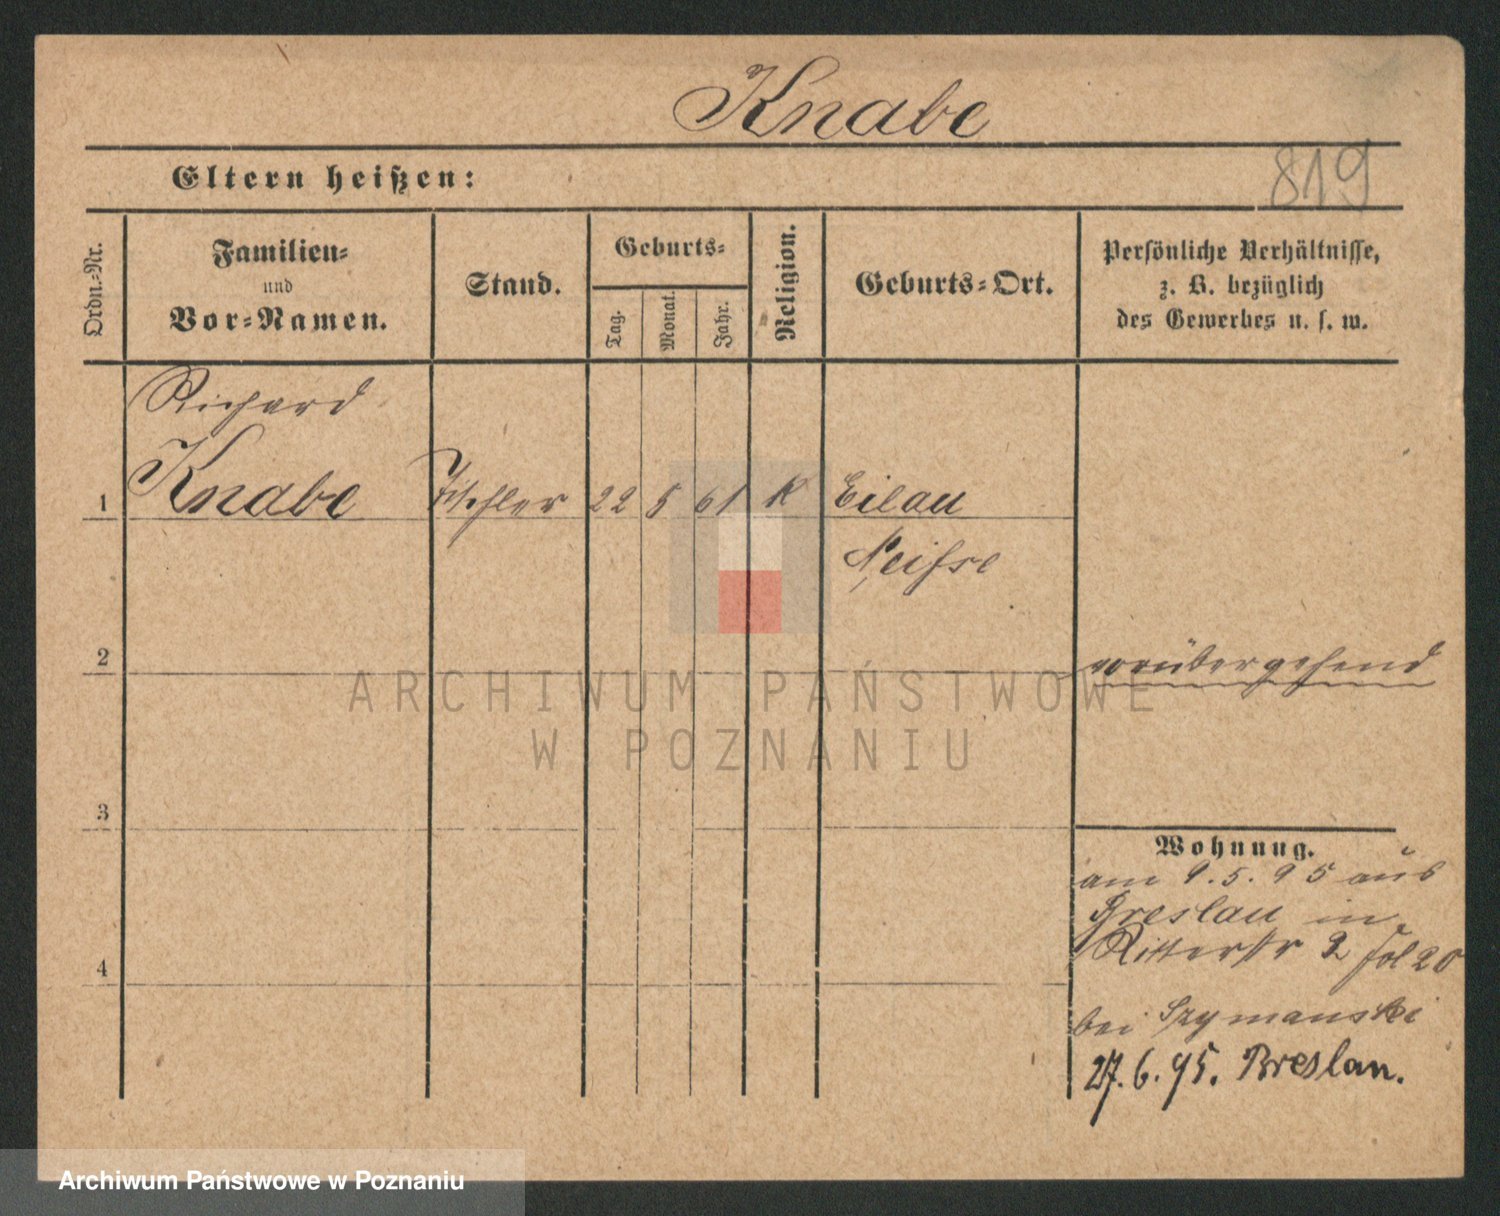 Knabe
819
Eltern heißen:
Ordn.-Nr.
Familien-
und
Vor-Namen.
Stand.
Geburts-
Tag.
Monat.
Jahr.
Religion.
Geburts-Ort.
Persönliche Verhältnisse,
z. B. bezüglich
des Gewerbes u. s. w.
Richard
1 Knabe Tischler 22 5 61 K Eilau
Neisse
2
vorübergehend
ARCHIWUM PAŃSTWOWE
W POZNANIU
3
Wohnung.
am 9.5.95 aus
Breslau in
Ritterstr 2 fol 20
4
bei Szymanski
27.6.95. Breslau.
Archiwum Państwowe w Poznaniu